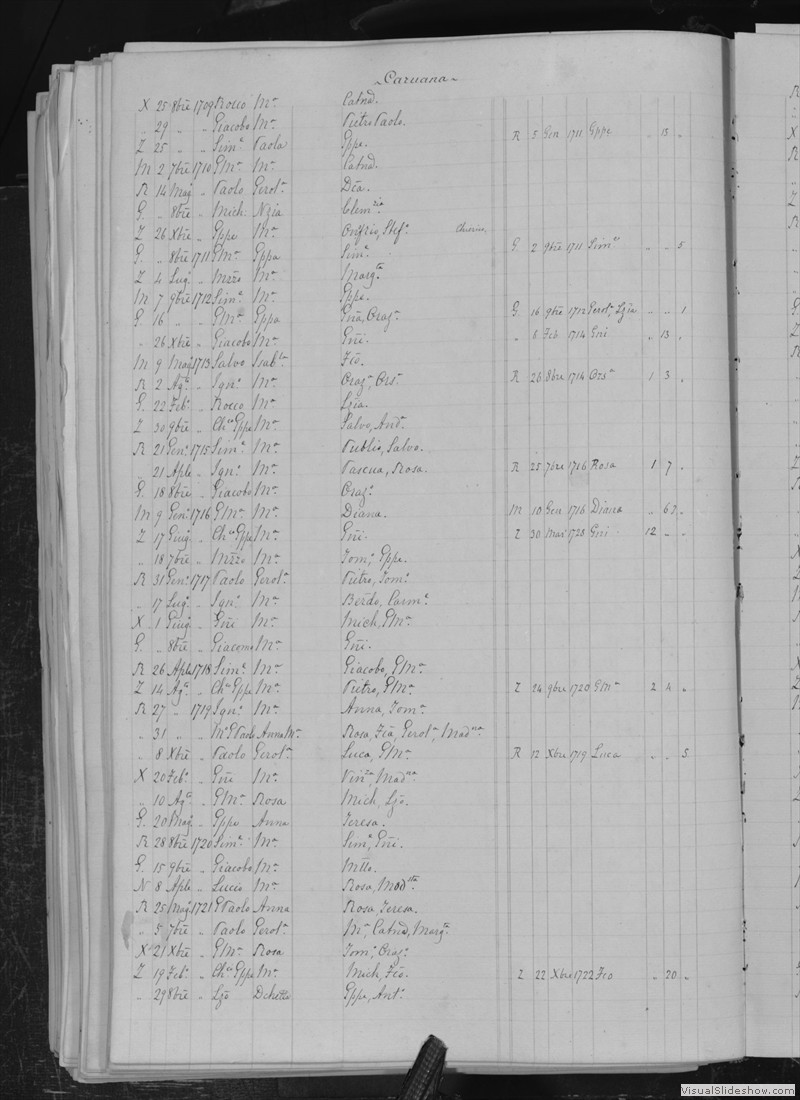 Caruana
X 25 8bre 1709 Rocco Ma Catnd.
" 29 " " Giacobo Ma Pietro Paolo.
Z 25 " " Sime Paola Gppe. R 5 Gen 1711 Gppe " 13 "
M 2 7bre 1710 GMa Ma Catnd.
R 14 Mag " Paolo Gerola Dca.
G. " 8bre " Mich. Nzia Clemzia
Z 26 Xbre " Gppe Ma Onifrio, Stefo
G. " 8bre 1711 GMa Gppa Sime G. 2 9bre 1711 Simne " " 5
Z 4 Lug. " Mzzo Ma Margta
M 7 9bre 1712 Sime Ma Gppe.
G. 16 " " GMa Gppa Gña, Orazo G. 16 9bre 1712 Gerola, Lzia " " 1
" 26 Xbre " Giacobo Ma Gñi. " 8 Feb 1714 Gni " 13 "
M 9 Mag 1713 Salvo Isabla Fco.
R 2 Ago " Ignо Ma Orazo, Orsa R 26 8bre 1714 Orsa 1 3 "
G. 22 Febo " Rocco Ma Lzia.
Z 30 9bre " Cho Gppe Ma Salvo, Anda
R 21 Geno 1715 Sime Ma Publio, Salvo.
" 21 Aple " Igno Ma Pascua, Rosa. R 25 7bre 1716 Rosa 1 7 "
G. 18 8bre " Giacobo Ma Orazo
M 9 Geno 1716 GMa Ma Diana. M 10 Gen 1716 Diana " 6
Z 17 Giug. " Cho Gppe Ma Gñi. Z 30 Mar 1728 Gni 12 " "
" 18 7bre " Mzzo Ma Tomo, Gppe.
R 31 Geno 1717 Paolo Gerola Pietro, Tomo
" 17 Lugo " Igno Ma Berdo, Carmo
X 1 Giug. " Gñi Ma Mich, GMa
G. " 8bre " Giacomo Ma Gñi.
R 26 Aple 1718 Sime Ma Giacobo, GMa
Z 14 Ago " Cho Gppe Ma Pietro, GMa Z 24 9bre 1720 GMa 2 4 "
R 27 " 1719 Igno Ma Anna, Toma
" 31 " " Mo GPaolo Anna Ma Rosa, Fca, Gerola, Madna
" 8 Xbre " Paolo Gerola Luca, GMa R 12 Xbre 1719 Luca " " 5
X 20 Febo " Gñi Ma Vinza Madna
" 10 Ago " GMa Rosa Mich, Lzo.
G. 20 Mag. " Gppe Anna Teresa.
R 28 8bre 1720 Sime Ma Sime, Gñi.
G. 15 9bre " Giacobo Ma Mtto.
N 8 Aple " Lucio Ma Rosa, Modsta
R 25 Mag. 1721 GPaolo Anna Rosa, Teresa.
" 5 7bre " Paolo Gerola Ma Catnd, Margta
X 21 Xbre " GMa Rosa Tomo, Orazo
Z 19 Febo " Cho Gppe Ma Mich, Fco. Z 22 Xbre 1722 Fco " 20 "
" 29 8bre " Lzo Dchetta Gppe, Anto
VisualSlideshow.com